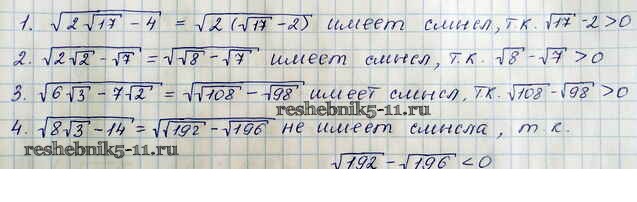 1. √(2√17 - 4) = √(2(√17 - 2)) имеет смысл, т.к. √17 - 2 > 0
2. √(2√2 - √7) = √(√8 - √7) имеет смысл, т.к. √8 - √7 > 0
3. √(6√3 - 7√2) = √(√108 - √98) имеет смысл, т.к. √108 - √98 > 0
reshebnik5-11.ru
4. √(8√3 - 14) = √(√192 - √196) не имеет смысла, т.к.
reshebnik5-11.ru
√192 - √196 < 0